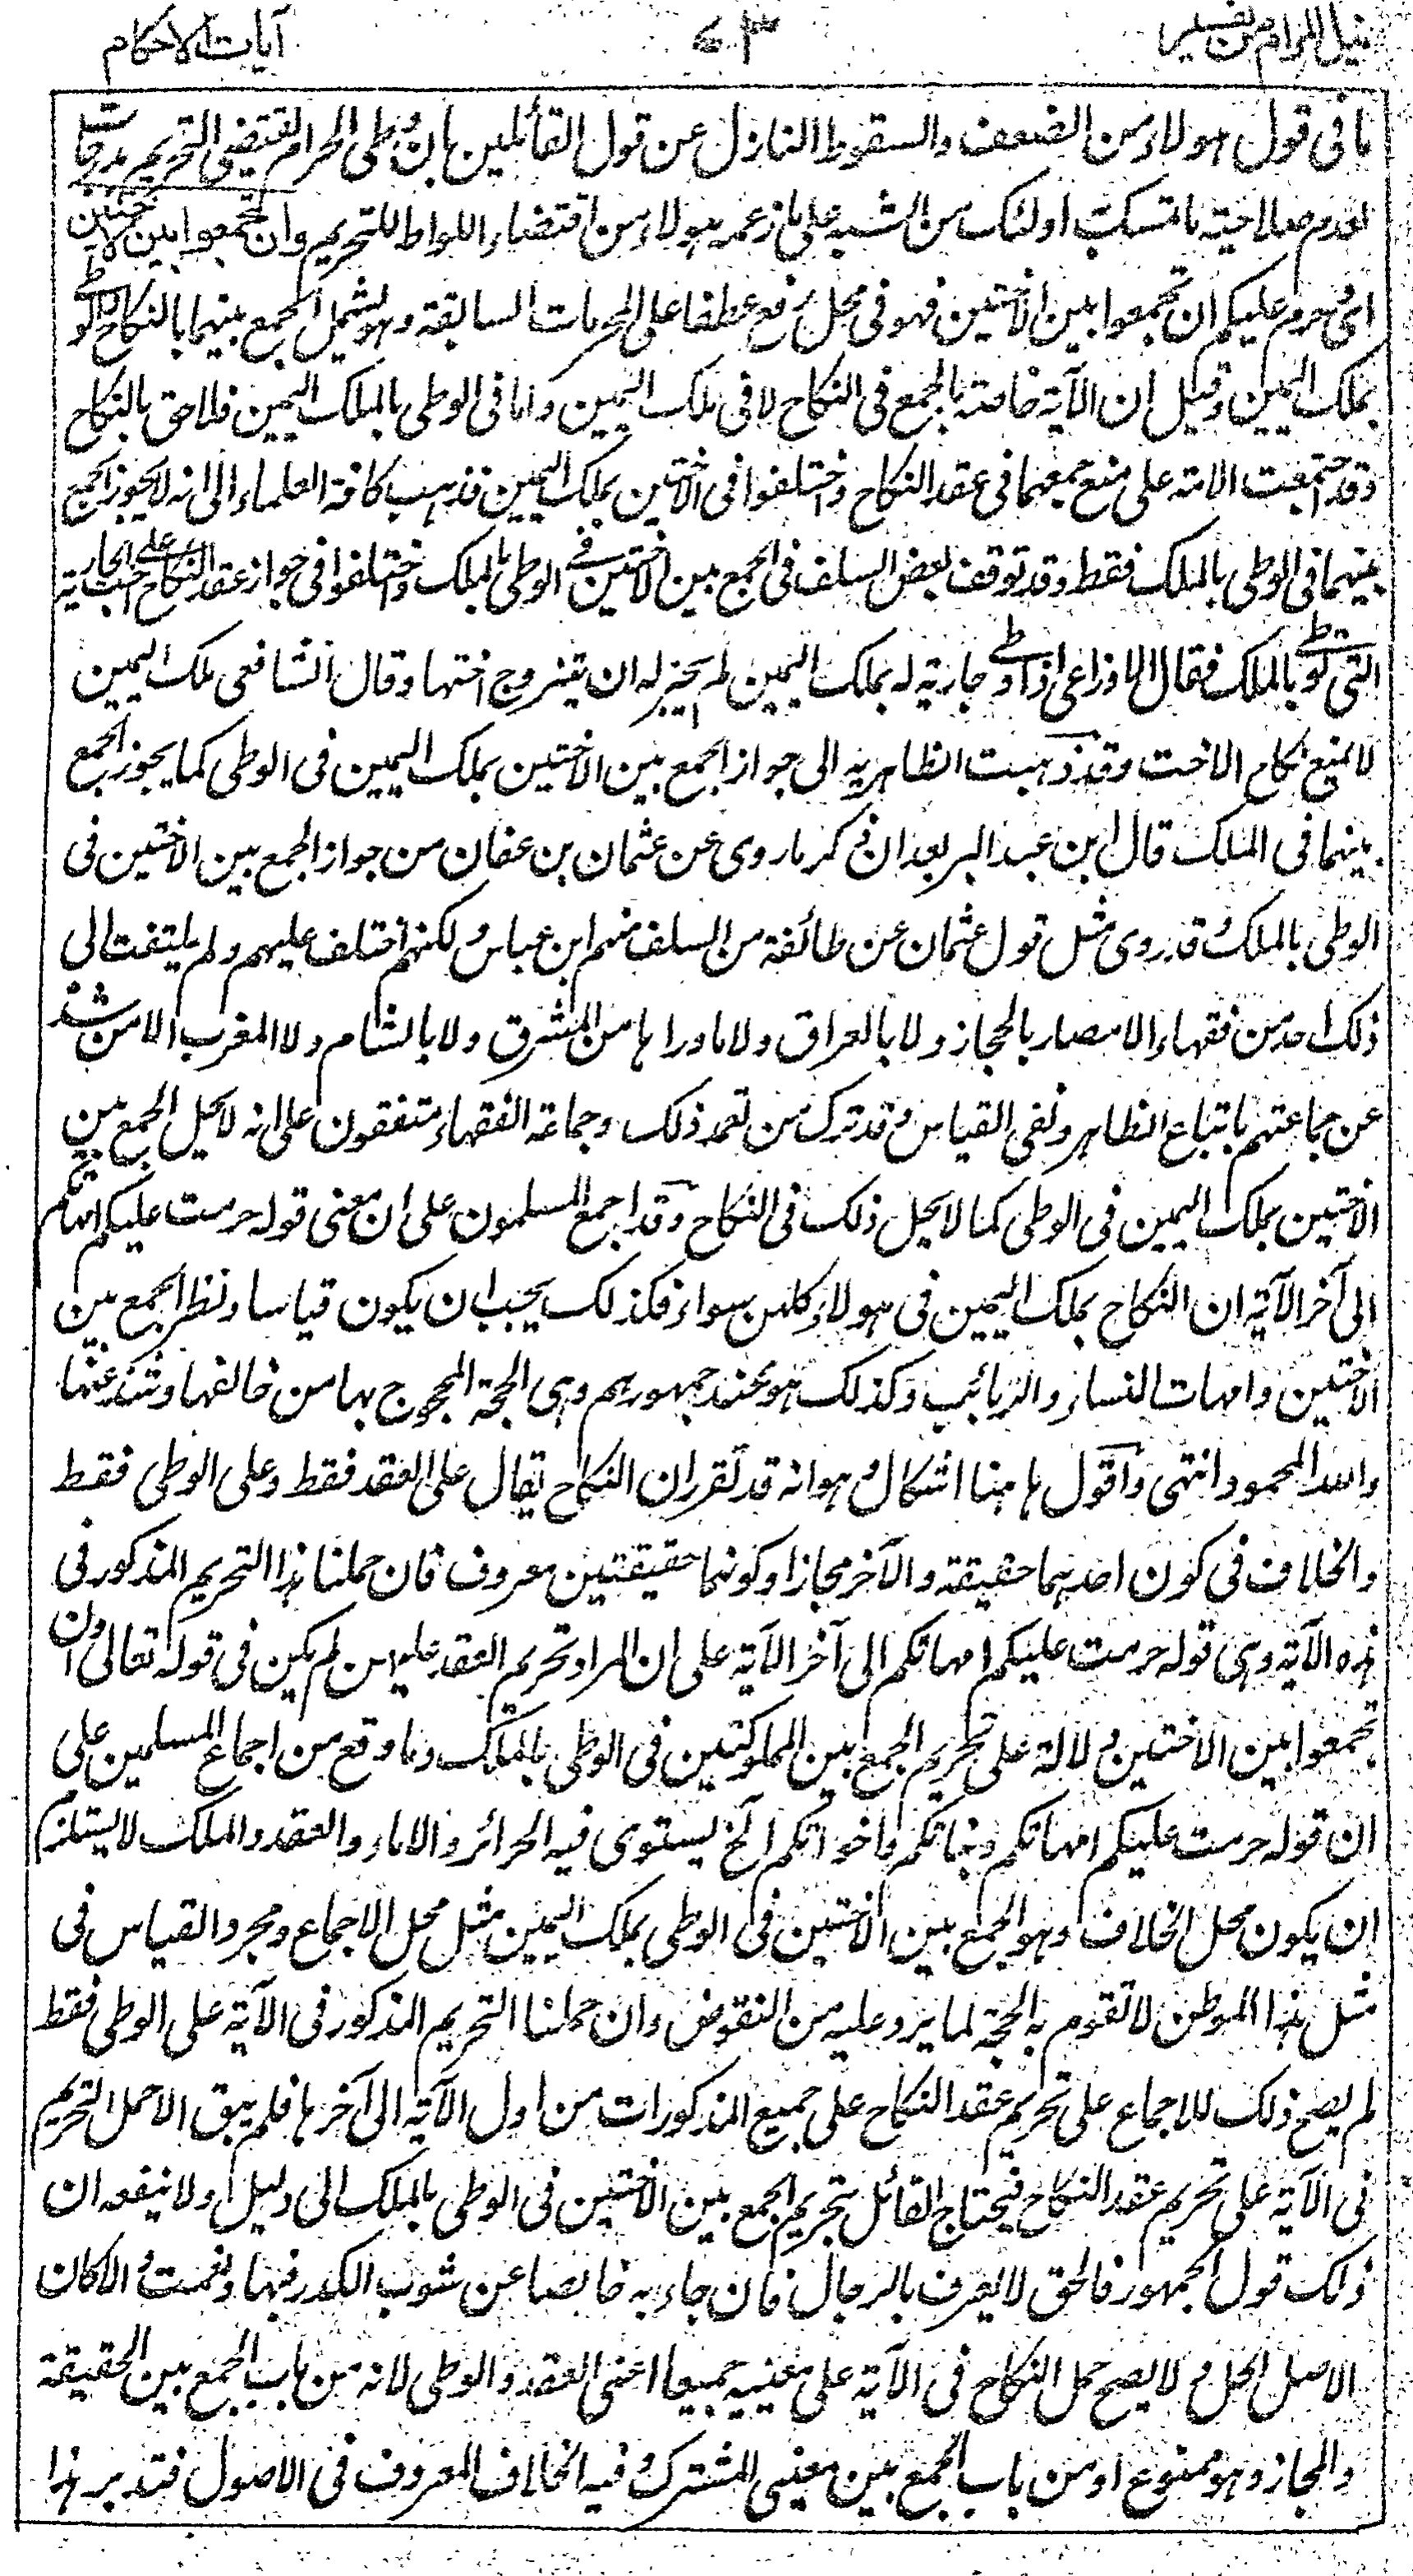 نيل المرام من تفسير ٧٣ آيات الاحكام
ما فى قول هولاء من الضعف والسقوط النازل عن قول القائلين بان وطى الحرام يقتضى التحريم بدرجات
لعدم صلاحية ما تمسك به اولئك من الشبه على ما زعمه هولاء من اقتضاء اللواط للتحريم وان تجمعوا بين الاختين
اى وحرم عليكم ان تجمعوا بين الاختين فهو فى محل رفع عطفا على المحرمات السابقة وهو يشمل الجمع بينهما بالنكاح والوطى
بملك اليمين وقيل ان الآية خاصة بالجمع فى النكاح لا فى ملك اليمين واما فى الوطى بالملك اليمين فلاحق بالنكاح
وقد اجتمعت الامة على منع جمعهما فى عقد النكاح واختلفوا فى الاختين بملك اليمين فذهب كافة العلماء الى انه لا يجوز الجمع
بينهما فى الوطى بالملك فقط وقد توقف بعض السلف فى الجمع بين الاختين فى الوطى بالملك واختلفوا فى جواز عقد النكاح على اخت الجارية
التى توطى بالملك فقال الاوزاعى اذا وطى جارية له بملك اليمين لم يجز له ان يتزوج اختها وقال الشافعى ملك اليمين
لا يمنع نكاح الاخت وقد ذهبت الظاهرية الى جواز الجمع بين الاختين بملك اليمين فى الوطى كما يجوز الجمع
بينهما فى الملك قال ابن عبد البر بعد ان ذكر ما روى عن عثمان بن عفان من جواز الجمع بين الاختين فى
الوطى بالملك وقد روى مثل قول عثمان عن طائفة من السلف منهم ابن عباس ولكنهم اختلف عليهم ولم يلتفت الى
ذلك احد من فقهاء الامصار بالحجاز ولا بالعراق ولا ما وراءها من المشرق ولا بالشام ولا المغرب الا من شذ
عن جماعتهم باتباع الظاهر ونفى القياس وقد ترك من تعمد ذلك وجماعة الفقهاء متفقون على انه لا يحل الجمع بين
الاختين بملك اليمين فى الوطى كما لا يحل ذلك فى النكاح وقد اجمع المسلمون على ان معنى قوله حرمت عليكم امهاتكم
الى آخر الآية ان النكاح بملك اليمين فى هولاء كلهن سواء فكذلك يجب ان يكون قياسا ونظرا الجمع بين
الاختين وامهات النساء والربائب وكذلك هو عند جمهورهم وهى الحجة المحجوج بها من خالفها وشذ عنها
والله المحمود انتهى واقول ها هنا اشكال وهو انه قد تقرر ان النكاح يقال على العقد فقط وعلى الوطى فقط
والخلاف فى كون احدهما حقيقة والآخر مجازا وكونهما حقيقتين معروف فان حملنا هذا التحريم المذكور فى
هذه الآية وهى قوله حرمت عليكم امهاتكم الى آخر الآية على ان المراد تحريم العقد عليهن لم يكن فى قوله تعالى وان
تجمعوا بين الاختين دلالة على تحريم الجمع بين المملوكتين فى الوطى بالملك وما وقع من اجماع المسلمين على
ان قوله حرمت عليكم امهاتكم وبناتكم واخواتكم الخ يستوى فيه الحرائر والاماء والعقد والملك لا يستلزم
ان يكون محل الخلاف وهو الجمع بين الاختين فى الوطى بملك اليمين مثل محل الاجماع ومجرد القياس فى
مثل هذا الموطن لا تقوم به الحجة لما يرد عليه من النقوض وان حملنا التحريم المذكور فى الآية على الوطى فقط
لم يصح ذلك للاجماع على تحريم عقد النكاح على جميع المذكورات من اول الآية الى آخرها فلم يبق الا حمل التحريم
فى الآية على تحريم عقد النكاح فيحتاج القائل بتحريم الجمع بين الاختين فى الوطى بالملك الى دليل ولا ينفعه ان
ذلك قول الجمهور فالحق لا يعرف بالرجال فان جاء به خالصا عن شوب الكدر فبها ونعمت والا كان
الاصل الحل ولا يصح حمل النكاح فى الآية على معنييه جميعا اعنى العقد والوطى لانه من باب الجمع بين الحقيقة
والمجاز وهو ممنوع او من باب الجمع بين معنيى المشترك وفيه الخلاف المعروف فى الاصول فتدبر هذا